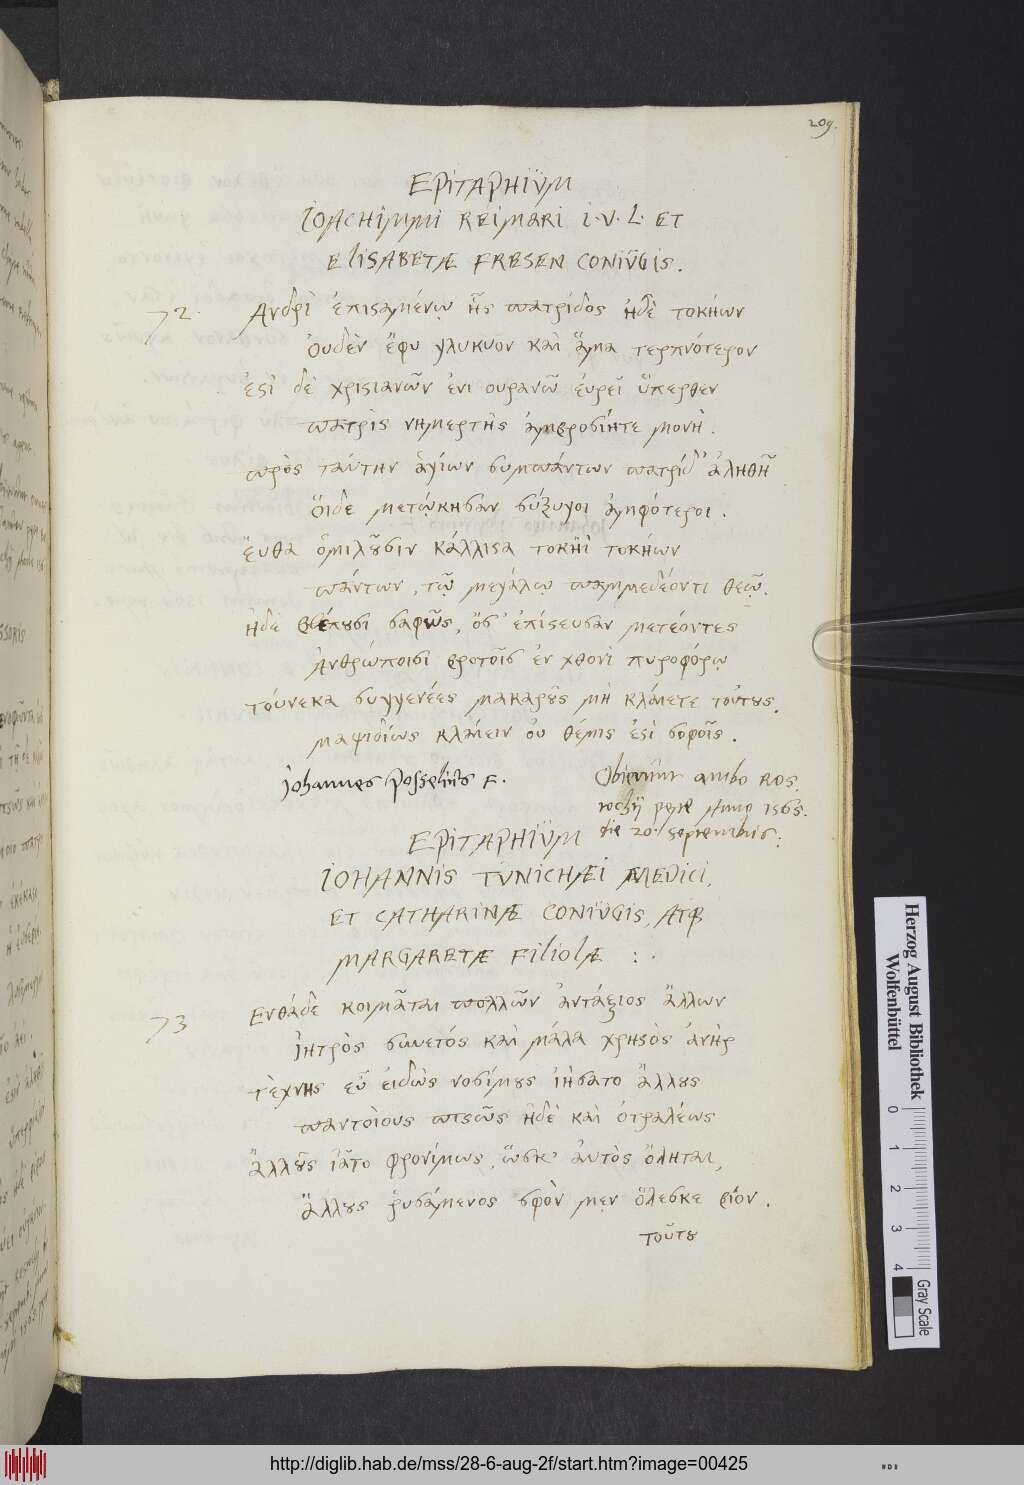 209.
EPITAPHIUM
IOACHIMMI REIMARI I. V. L. ET
ELISABETÆ FRESEN CONIUGIS.
72. Ἀνδρὶ ἐπισαμένῳ ἧς πατρίδος ἠδὲ τοκήων
Ὀυδὲν ἔφυ γλυκυον καὶ ἅμα τερπνότερον
ἐστὶ δὲ χριστιανῶν ἐνι ουρανῶ ἐυρεῖ ὕπερθεν
πατρὶς νημερτὴς ἀμβροσίητε μονὴ.
πρὸς ταύτην ἁγίων συμπάντων πατρίδ' ἀληθῆ
ὅιδε μετῴκησαν σύζυγοι ἀμφότεροι.
ἔνθα ὁμιλοῦσιν κάλλιστα τοκῆϊ τοκήων
πάντων, τῷ μεγάλῳ παμμεδέοντι θεῷ.
ἠδὲ βλέπουσι σαφῶς, ὅσ' ἐπίστευσαν μετεόντες
Ἀνθρώποισι βροτοῖς ἐν χθονὶ πυροφόρῳ
τόυνεκα συγγενέες μακαροὺς μὴ κλάιετε τούτους,
μαψιδίως κλάιειν ὀυ θέμις ἐστὶ σοφοῖς.
Iohannes Posselius F.
Obierunt ambo ROS,
tochij peste Anno 1565.
die 20. septembris:
EPITAPHIUM
IOHANNIS TUNICHÆI MEDICI,
ET CATHARINÆ CONIUGIS, ATQ
MARGARETÆ FILIOLÆ :.
73 Ενθάδε κοιμᾶται πολλῶν ἀντάξιος ἄλλων
ἰητρὸς συνετός καὶ μάλα χρηστὸς ἀνὴρ
τέχνης εὖ ἐιδὼς νοσίμους ἰήσατο ἄλλους
παντοίους πιστῶς ἠδὲ καὶ ὀτραλέως
ἄλλοὺς ἰᾶτο φρονίμως, ὥστε ἀυτὸς ὄληται,
ἄλλους ῥυσάμενος σφὸν μεν ὄλεσκε βίον.
τούτου
Herzog August Bibliothek
Wolfenbüttel
0 1 2 3 4
Gray Scale
http://diglib.hab.de/mss/28-6-aug-2f/start.htm?image=00425